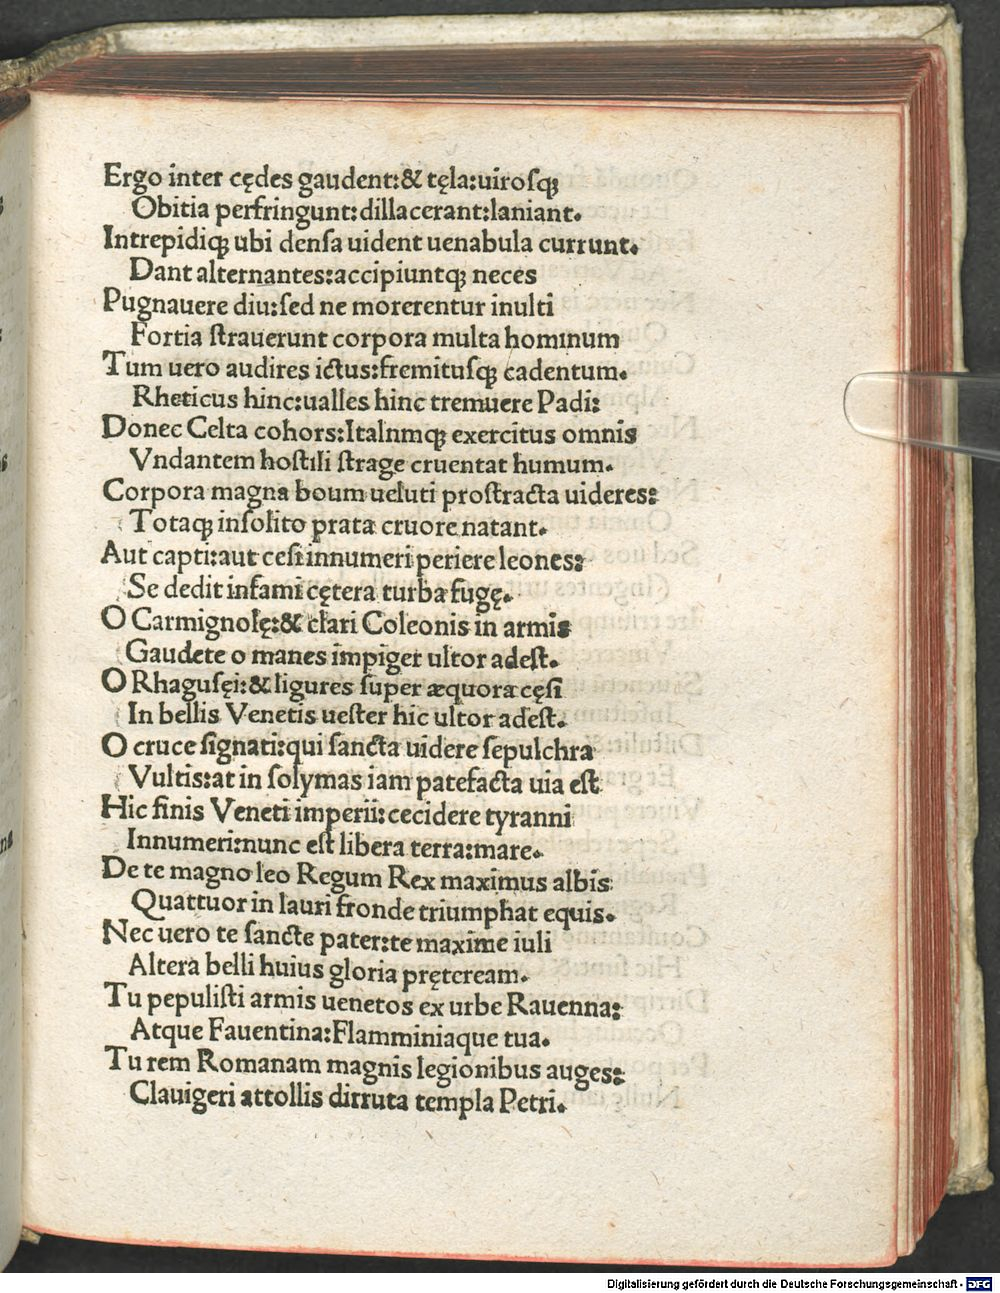 Ergo inter cędes gaudent:& tęla:uirosꝗ
Obitia perfringunt:dillacerant:laniant.
Intrepidiꝗ ubi densa uident uenabula currunt.
Dant alternantes:accipiuntꝗ neces
Pugnauere diu:sed ne morerentur inulti
Fortia strauerunt corpora multa hominum
Tum uero audires ictus:fremitusꝗ cadentum.
Rheticus hinc:ualles hinc tremuere Padi:
Donec Celta cohors:Italnmꝗ exercitus omnis
Vndantem hostili strage cruentat humum.
Corpora magna boum ueluti prostracta uideres:
Totaꝗ insolito prata cruore natant.
Aut capti:aut cesi innumeri periere leones:
Se dedit infami cętera turba fugę.
O Carmignolę:& clari Coleonis in armis
Gaudete o manes impiger ultor adest.
O Rhagusęi:& ligures super æquora cęsi
In bellis Venetis uester hic ultor adest.
O cruce signati:qui sancta uidere sepulchra
Vultis:at in solymas iam patefacta uia est
Hic finis Veneti imperii:cecidere tyranni
Innumeri:nunc est libera terra:mare.
De te magno leo Regum Rex maximus albis
Quattuor in lauri fronde triumphat equis.
Nec uero te sancte pater:te maxime iuli
Altera belli huius gloria prętcream.
Tu pepulisti armis uenetos ex urbe Rauenna:
Atque Fauentina:Flamminiaque tua.
Tu rem Romanam magnis legionibus auges:
Clauigeri attollis dirruta templa Petri.
Digitalisierung gefördert durch die Deutsche Forschungsgemeinschaft - DFG